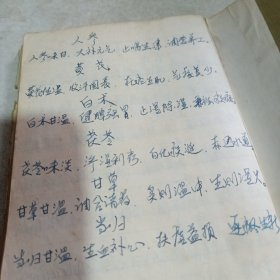 人参
人参味甘,大补元气,止渴生津,调营养卫。
黄芪
黄芪性温,收汗固表,托疮生肌,气虚莫少。
白术
白术甘温,健脾强胃,止泻除湿,
茯苓
茯苓味淡,渗湿利窍,白化痰涎,赤通水道
甘草
甘草甘温,调和诸药,炙则温中,生则泻火。
当归
当归甘温,生血补心,扶虚益损,